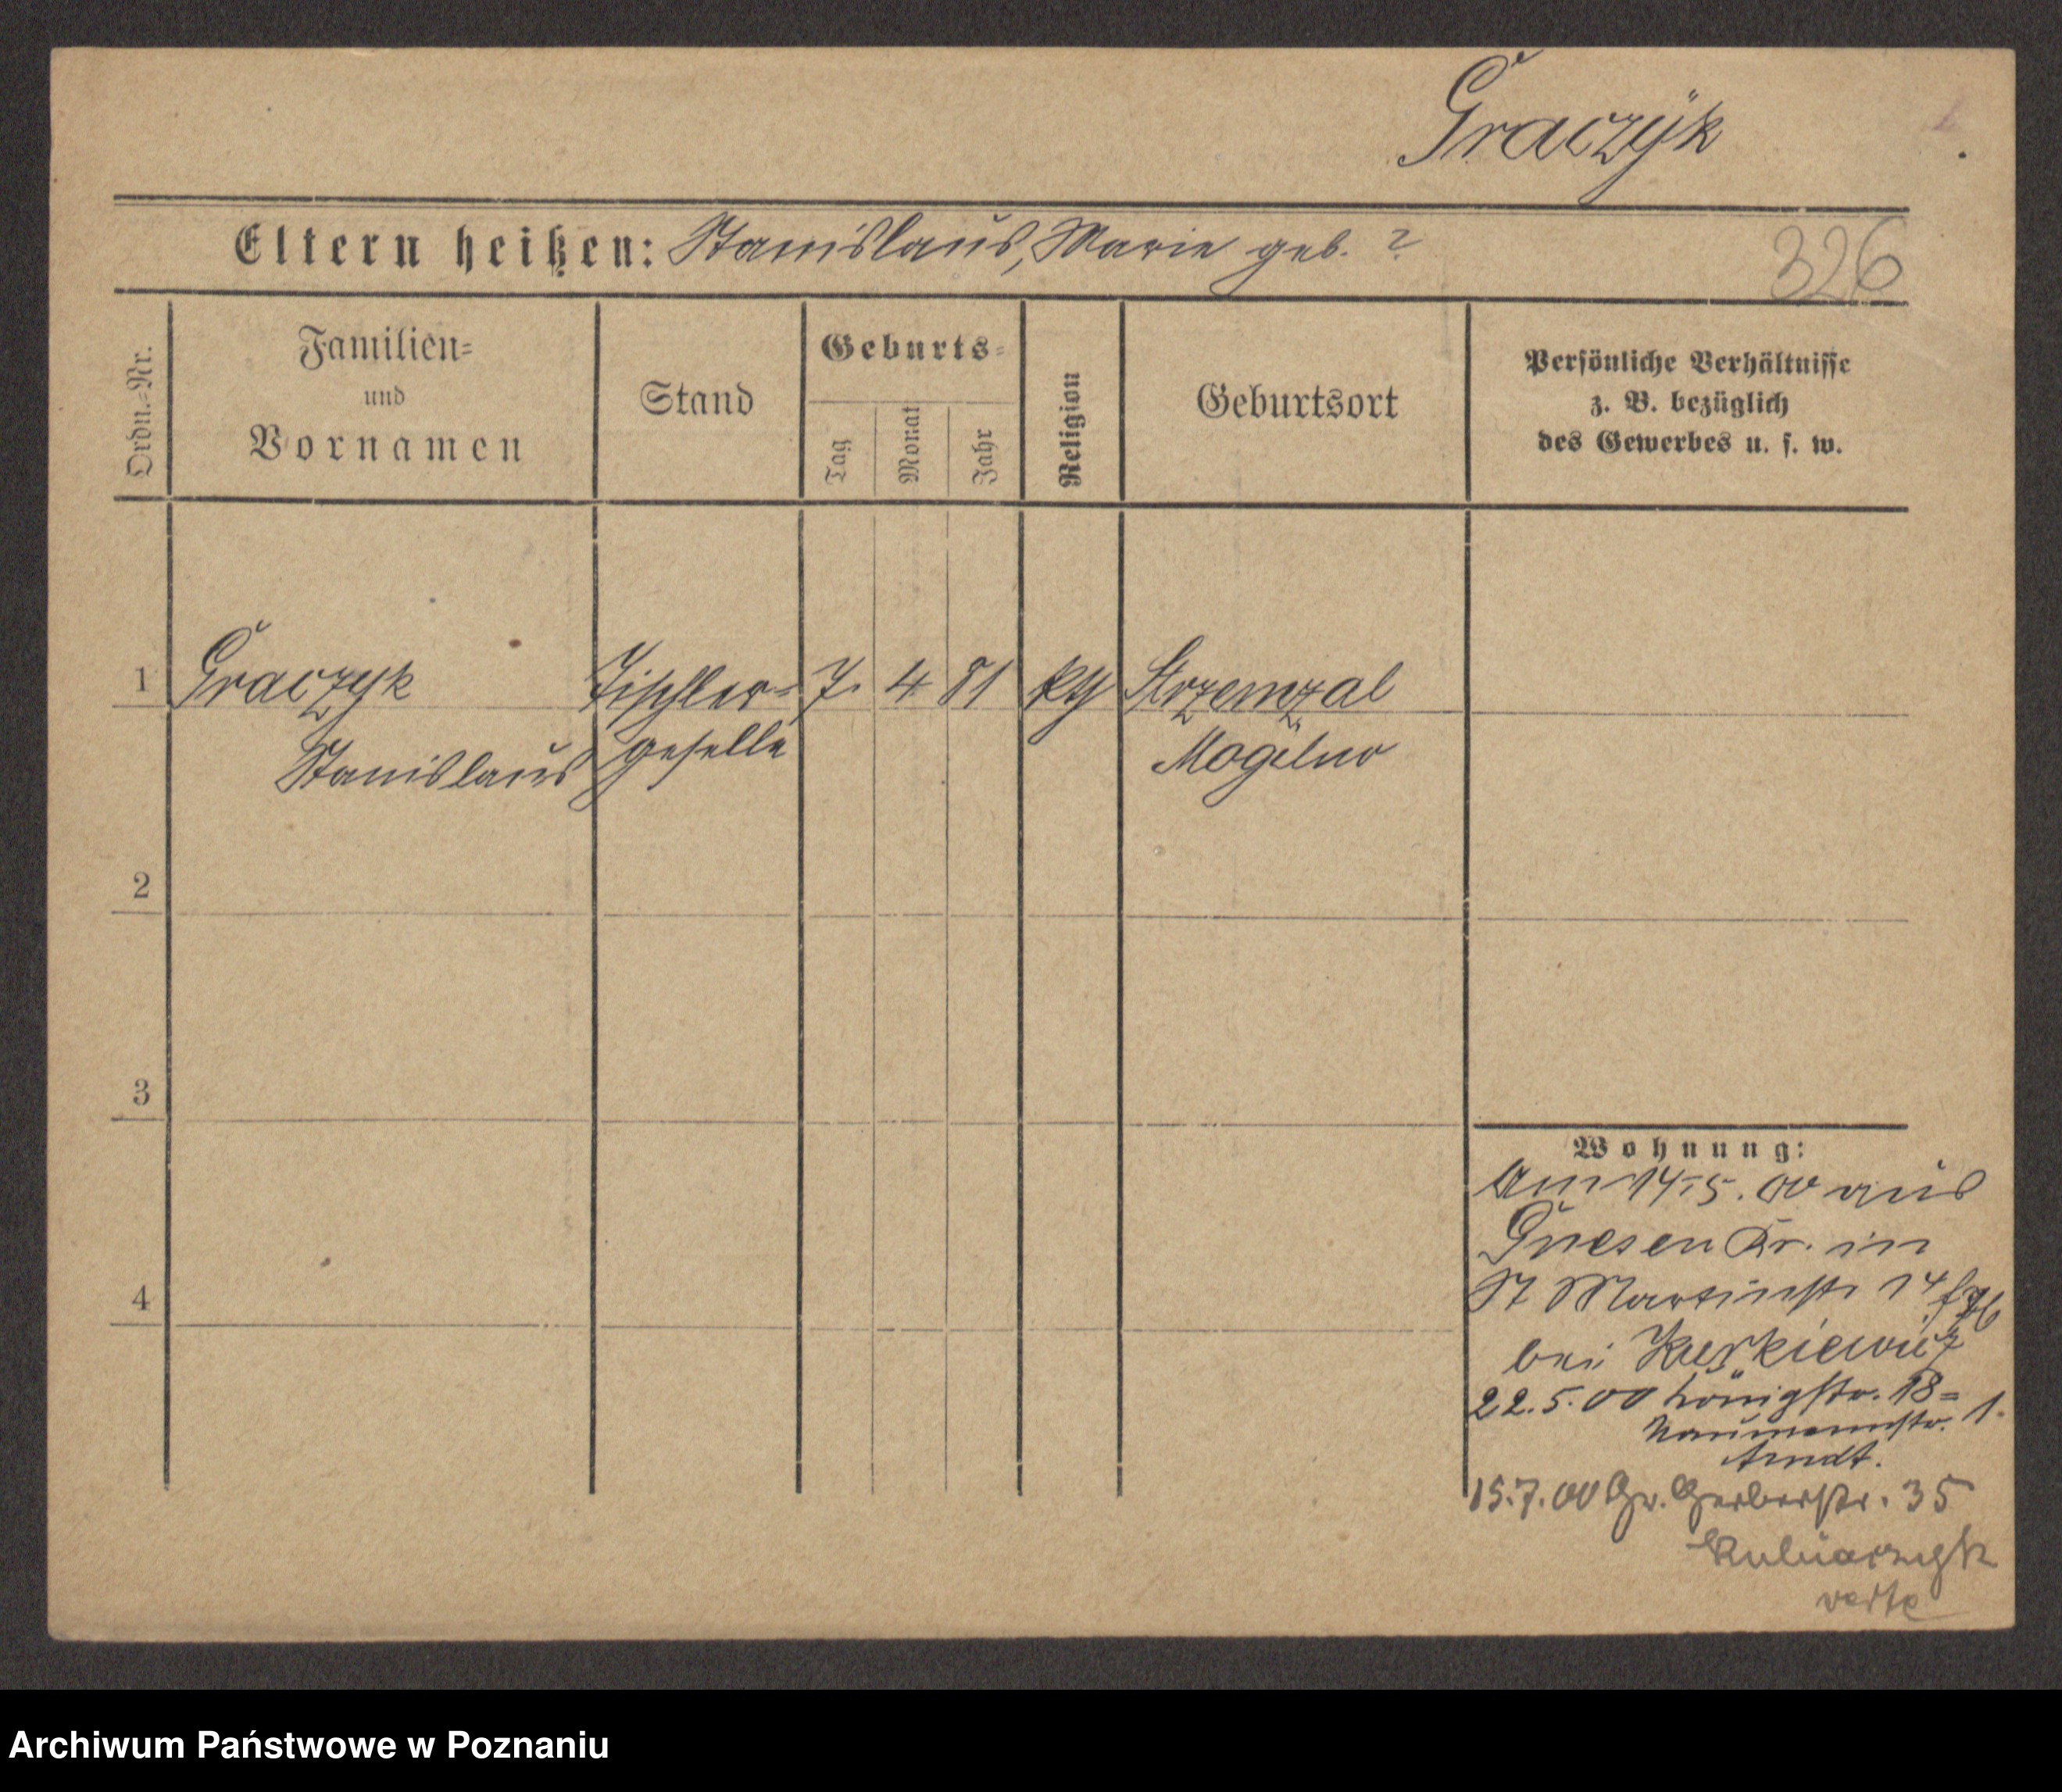 Graczÿk
Eltern heißen: Stanislaus, Marie geb. ?
326
Ordn.-Nr.
Familien-
und
Vornamen
Stand
Geburts-
Tag
Monat
Jahr
Religion
Geburtsort
Persönliche Verhältnisse
z. B. bezüglich
des Gewerbes u. s. w.
1 Graczyk Tischler- 7. 4 81 kth Strzemzal
Stanislaus geselle Mogilno
2
3
4
Wohnung:
Am 14.5.00 aus
Gnesen Kr. in
St Martinstr 14
bei Kurkiewicz
22.5.00 Königstr. 18=
Naumannstr. 1.
Arndt.
15.7.00 Gr. Gerberstr. 35
verte
Archiwum Państwowe w Poznaniu